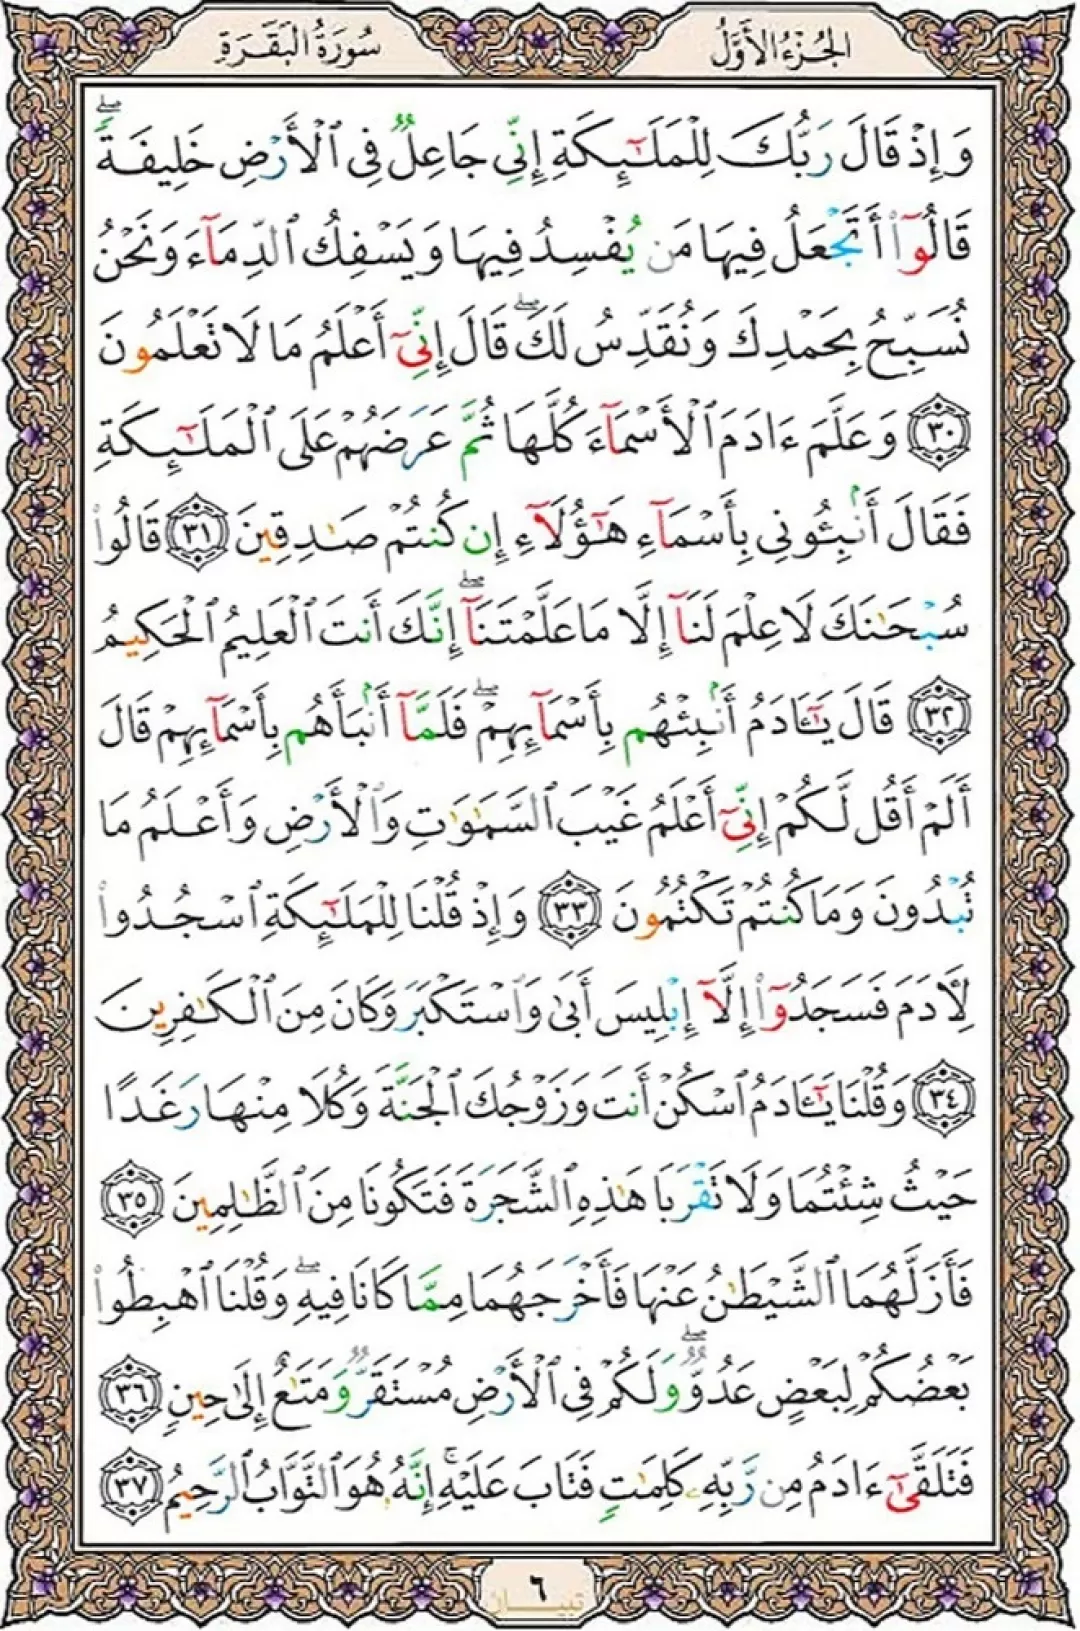 الجُزْءُ الأَوَّلُ
سُورَةُ البَقَرَةِ
وَإِذْ قَالَ رَبُّكَ لِلْمَلَٰٓئِكَةِ إِنِّي جَاعِلٌ فِي ٱلْأَرْضِ خَلِيفَةً ۖ
قَالُوٓا۟ أَتَجْعَلُ فِيهَا مَن يُفْسِدُ فِيهَا وَيَسْفِكُ ٱلدِّمَآءَ وَنَحْنُ
نُسَبِّحُ بِحَمْدِكَ وَنُقَدِّسُ لَكَ ۖ قَالَ إِنِّيٓ أَعْلَمُ مَا لَا تَعْلَمُونَ
٣٠ وَعَلَّمَ ءَادَمَ ٱلْأَسْمَآءَ كُلَّهَا ثُمَّ عَرَضَهُمْ عَلَى ٱلْمَلَٰٓئِكَةِ
فَقَالَ أَنۢبِـُٔونِي بِأَسْمَآءِ هَٰٓؤُلَآءِ إِن كُنتُمْ صَٰدِقِينَ ٣١ قَالُوا۟
سُبْحَٰنَكَ لَا عِلْمَ لَنَآ إِلَّا مَا عَلَّمْتَنَآ ۖ إِنَّكَ أَنتَ ٱلْعَلِيمُ ٱلْحَكِيمُ
٣٢ قَالَ يَٰٓـَٔادَمُ أَنۢبِئْهُم بِأَسْمَآئِهِمْ ۖ فَلَمَّآ أَنۢبَأَهُم بِأَسْمَآئِهِمْ قَالَ
أَلَمْ أَقُل لَّكُمْ إِنِّيٓ أَعْلَمُ غَيْبَ ٱلسَّمَٰوَٰتِ وَٱلْأَرْضِ وَأَعْلَمُ مَا
تُبْدُونَ وَمَا كُنتُمْ تَكْتُمُونَ ٣٣ وَإِذْ قُلْنَا لِلْمَلَٰٓئِكَةِ ٱسْجُدُوا۟
لِـَٔادَمَ فَسَجَدُوٓا۟ إِلَّآ إِبْلِيسَ أَبَىٰ وَٱسْتَكْبَرَ وَكَانَ مِنَ ٱلْكَٰفِرِينَ
٣٤ وَقُلْنَا يَٰٓـَٔادَمُ ٱسْكُنْ أَنتَ وَزَوْجُكَ ٱلْجَنَّةَ وَكُلَا مِنْهَا رَغَدًا
حَيْثُ شِئْتُمَا وَلَا تَقْرَبَا هَٰذِهِ ٱلشَّجَرَةَ فَتَكُونَا مِنَ ٱلظَّٰلِمِينَ ٣٥
فَأَزَلَّهُمَا ٱلشَّيْطَٰنُ عَنْهَا فَأَخْرَجَهُمَا مِمَّا كَانَا فِيهِ ۖ وَقُلْنَا ٱهْبِطُوا۟
بَعْضُكُمْ لِبَعْضٍ عَدُوٌّ ۖ وَلَكُمْ فِي ٱلْأَرْضِ مُسْتَقَرٌّ وَمَتَٰعٌ إِلَىٰ حِينٍ ٣٦
فَتَلَقَّىٰٓ ءَادَمُ مِن رَّبِّهِۦ كَلِمَٰتٍ فَتَابَ عَلَيْهِ ۚ إِنَّهُۥ هُوَ ٱلتَّوَّابُ ٱلرَّحِيمُ ٣٧
٦
تبيان